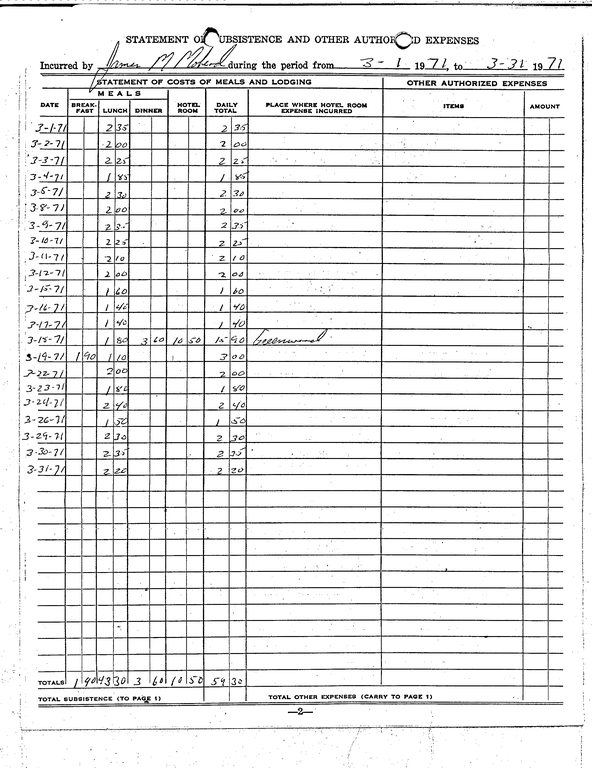 STATEMENT OF SUBSISTENCE AND OTHER AUTHORIZED EXPENSES
Incurred by James M during the period from 3-1 1971, to 3-31 1971
STATEMENT OF COSTS OF MEALS AND LODGING OTHER AUTHORIZED EXPENSES
MEALS
DATE BREAK-FAST LUNCH DINNER HOTEL ROOM DAILY TOTAL PLACE WHERE HOTEL ROOM EXPENSE INCURRED ITEMS AMOUNT
3-1-71 2 35 2 35
3-2-71 2 00 2 00
3-3-71 2 25 2 25
3-4-71 1 85 1 85
3-5-71 2 30 2 30
3-8-71 2 00 2 00
3-9-71 2 35 2 35
3-10-71 2 25 2 25
3-11-71 2 10 2 10
3-12-71 2 00 2 00
3-15-71 1 60 1 60
3-16-71 1 40 1 40
3-17-71 1 40 1 40
3-15-71 1 80 3 60 10 50 15 90 Greenwood
3-19-71 1 90 1 10 3 00
3-22-71 2 00 2 00
3-23-71 1 80 1 80
3-24-71 2 40 2 40
3-26-71 1 50 1 50
3-29-71 2 30 2 30
3-30-71 2 35 2 35
3-31-71 2 20 2 20
TOTALS 1 90 43 30 3 60 10 50 59 30
TOTAL SUBSISTENCE (TO PAGE 1) TOTAL OTHER EXPENSES (CARRY TO PAGE 1)
—2—